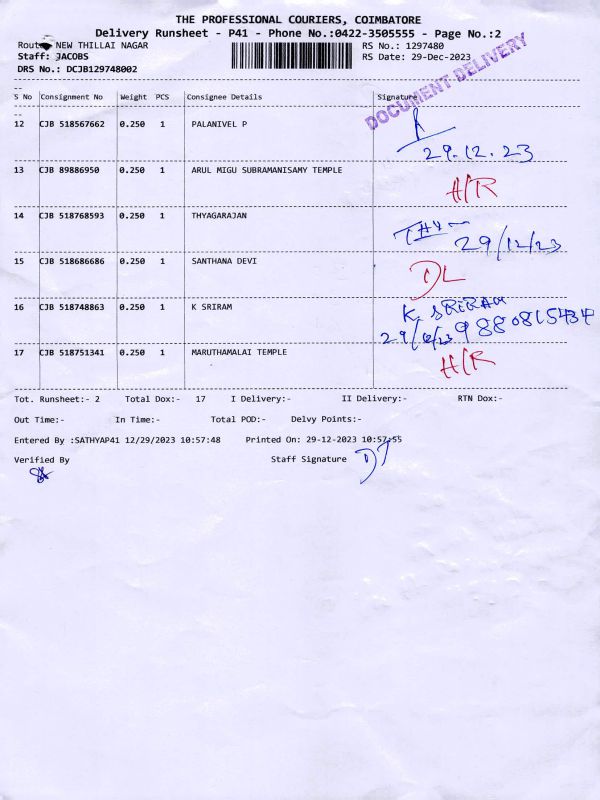 THE PROFESSIONAL COURIERS, COIMBATORE
Delivery Runsheet - P41 - Phone No.:0422-3505555 - Page No.:2
Route: NEW THILLAI NAGAR
RS No.: 1297480
Staff: JACOBS
RS Date: 29-Dec-2023
DRS No.: DCJB129748002
DOCUMENT DELIVERY
S No Consignment No Weight PCS Consignee Details Signature
12 CJB 518567662 0.250 1 PALANIVEL P
29.12.23
13 CJB 89886950 0.250 1 ARUL MIGU SUBRAMANISAMY TEMPLE
H/R
14 CJB 518768593 0.250 1 THYAGARAJAN
29/12/23
15 CJB 518686686 0.250 1 SANTHANA DEVI
DL
16 CJB 518748863 0.250 1 K SRIRAM
K. SRIRAM
29/12/23 9880815434
17 CJB 518751341 0.250 1 MARUTHAMALAI TEMPLE
H/R
Tot. Runsheet:- 2 Total Dox:- 17 I Delivery:- II Delivery:- RTN Dox:-
Out Time:- In Time:- Total POD:- Delvy Points:-
Entered By :SATHYAP41 12/29/2023 10:57:48 Printed On: 29-12-2023 10:57:55
Verified By Staff Signature